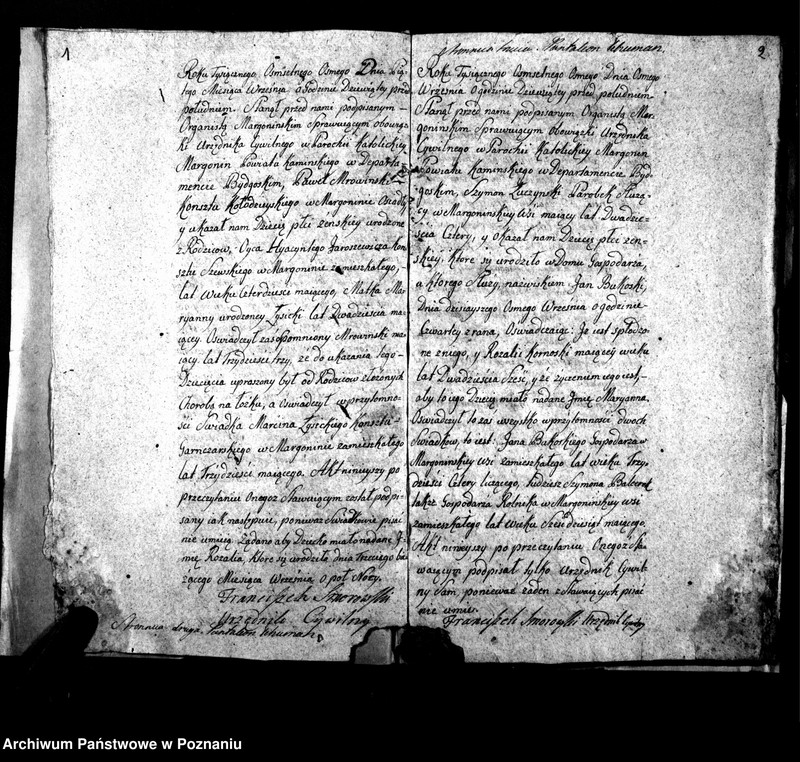 1
Roku Tysiącznego Osmsetnego Osmego Dnia Pią-
tego Miesiąca Września o Godzinie Dziewiątey przed
południem. Stanął przed nami podpisanym
Organistą Margoninskim Sprawuiącym obowiąz-
ki Urzędnika Cywilnego w Parochii Katolickiey
Margonin Powiatu Kaminskiego w Departa-
mencie Bydgoskim, Paweł Mrowinski
Konsztu Kołodzieyskiego w Margoninie Osiadły
y ukazał nam Dziecię płci zenskiey urodzone
z Rodzicow, Oyca Hyacyntego Jaroszewicza Kon
sztu Szewskiego w Margoninie zamieszkałego,
lat Wieku Czterdziesci maiącego, a Matka Ma-
ryanny urodzoney Łysicki lat Dwadziescia ma-
iącey. Oswiadczył zas Wspomniony Mrowinski ma-
iący lat Trzydziesci trzy, ze do ukazania tego
Dziecięcia uproszony był od Rodzicow złożonych
Chorobą na łożku, a Oswiadczył w przytomno-
ści Swiadka Marcina Łysieckiego Konsztu
Garnczarskiego w Margoninie zamieszkałego
lat Trzydziesci maiącego. Akt ninieyszy po
przeczytaniu Onegoz Stawaiącym został podpi-
sany iak następuie, poniewaz Swiadkowie pisac
nie umieią. Żądano aby Dziecko miało nadane J-
mię Rozalia, ktore się urodziło dnia trzeciego bie
zącego Miesiąca Września, o poł Nocy.
Franciszek Smorowski
Urzędnik Cywilny
Stronnica druga Pantaleon Schuman
Stronnica trzecia. Pantaleon Schuman.
2
Roku Tysiącznego Osmsetnego Osmego Dnia Osmego
Września o godzinie Dziewiątey przed południem.
Stanął przed nami podpisanym Organistą Mar-
goninskim Sprawuiącym Obowiązki Urzędnika
Cywilnego w Parochii Katolickiey Margonin
Powiatu Kaminskiego w Departamencie Byd-
goskim, Szymon Łuczynski Parobek Służą-
cy w Margoninskiey Wsi maiący lat Dwadzie-
ścia Cztery, y Okazał nam Dziecię płci zen-
skiey, ktore się urodziło w Domu Gospodarza,
u ktorego Służy, nazwiskiem Jan Bukoski
Dnia Dzisiayszego Osmego Września o godzinie
Czwartey z rana, Oswiadczaiąc: Je iest spłodzo-
ne z niego, y Rozalii Kornoski maiącey wieku
lat Dwadziescia Szesć, y że życzeniem iego iest,
aby to iego Dziecię miało nadane Jmię Maryanna.
Oswiadczył to zas wszystko w przytomności dwoch
Swiadkow, to iest: Jana Bukoskiego Gospodarza w
Margoninskiey Wsi zamieszkałego lat wieku Trzy-
dziesci Cztery liczącego, tudziesz Szymona
także Gospodarza Rolnika w Margoninskiey wsi
zamieszkałego lat Wieku Szesćdziesiąt maiącego.
Akt ninieyszy po przeczytaniu Onegoz Sta-
waiącym podpisał tylko Urzędnik Cywil-
ny Sam, poniewaz żaden z Stawaiących pisac
nie umie.
Franciszek Smorowski Urzędnik Cywilny
Archiwum Państwowe w Poznaniu